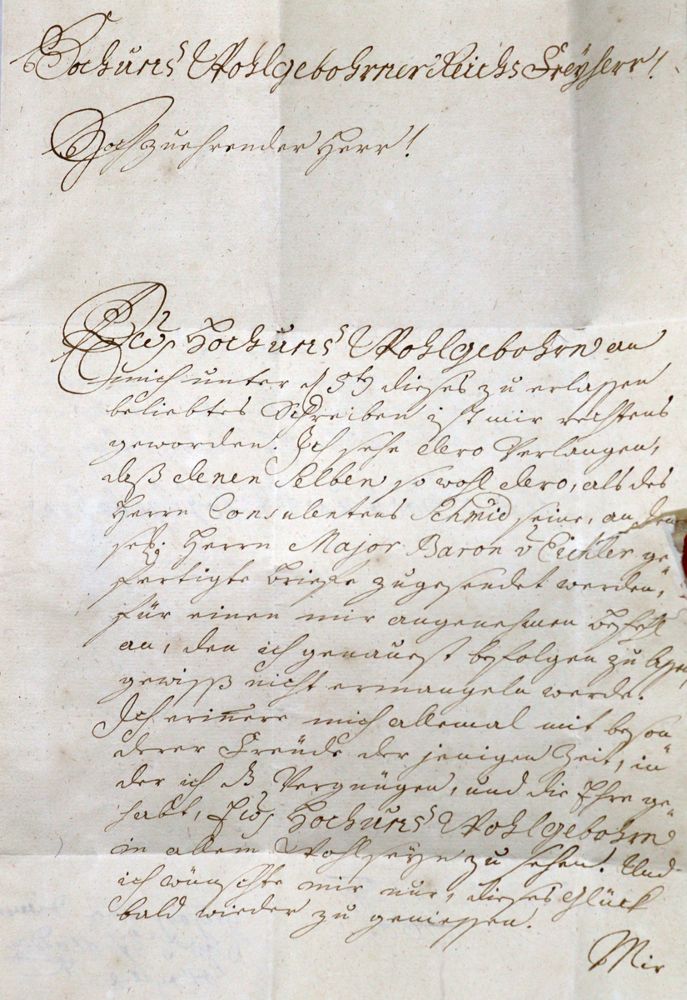 Hoch und Wohlgebohrner Reichs Freyherr!
Hochzuehrender Herr!
Euer Hoch und Wohlgebohrn an
mich unter 5t dieses zu erlassen
beliebtes Schreiben ist mir rechtens
geworden. Ich sehe dero Verlangen,
daß denen Selben so wohl dero, als des
Herrn Consulentens Schmid seine, an
Herrn Major Baron v Eichler ge-
fertigte briefe zugesendet werden,
für einen mir angenehmen befehl
an, den ich genauest befolgen zu lassen,
gewiß nicht ermangeln werde.
Ich erinere mich allemal mit beson
derer Freude der jenigen Zeit, in
der ich Vergnügen, und die Ehre ge-
habt, Euer Hoch und Wohlgebohrn
in allem Wohlseyn zu sehen. Und
ich wünschte mir nur, dieses Glück
bald wieder zu geniessen.
Mir